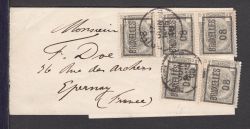 Monsieur
F. Doé
36 Rue des Archers
Epernay
(France)
BRUXELLES 08
BRUXELLES 08
BRUXELLES 08
BRUXELLES 08
BRUXELLES 08